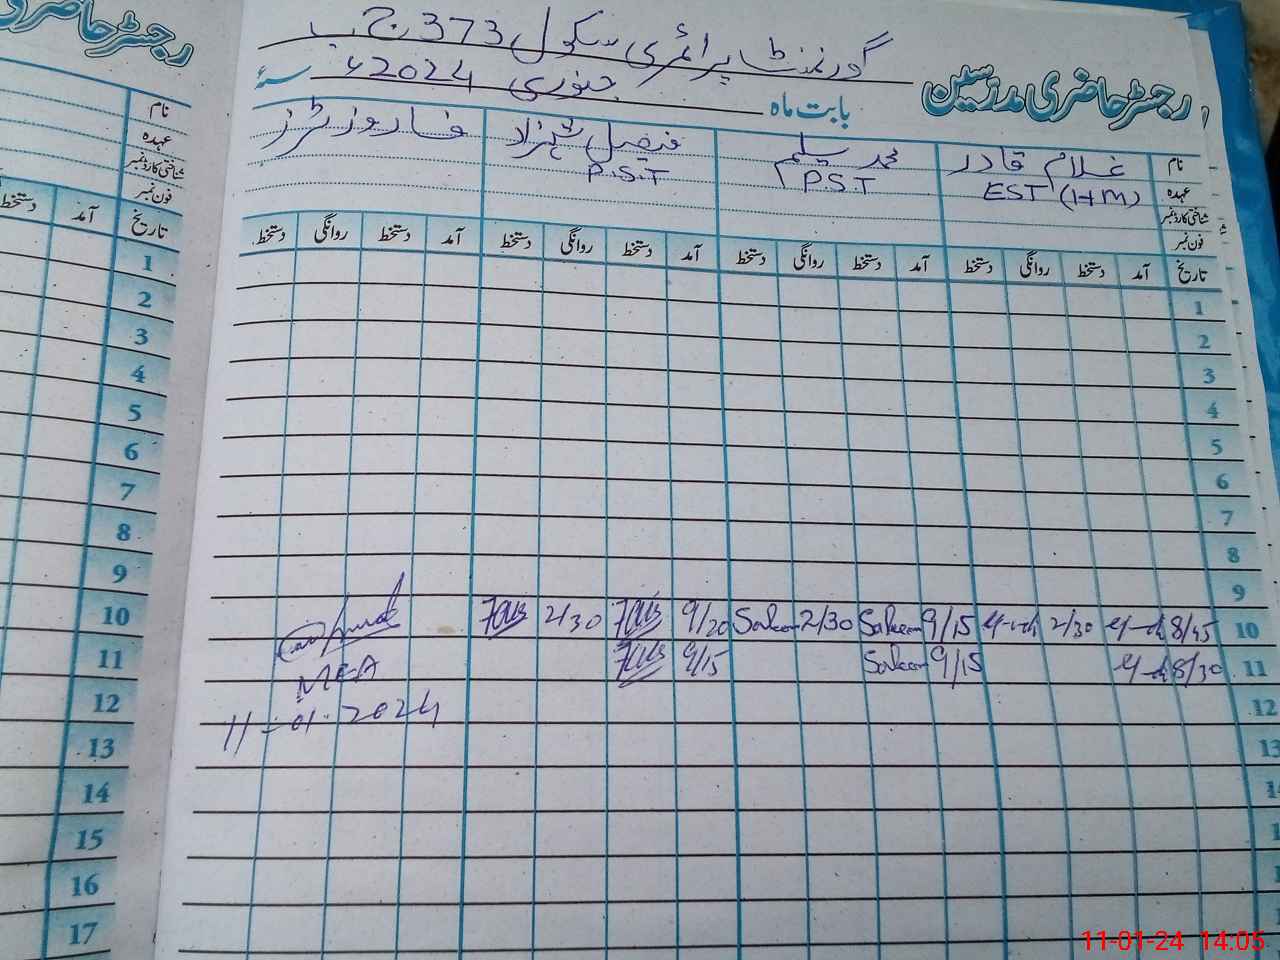 رجسٹر حاضری مدرسین
گورنمنٹ پرائمری سکول 373 ج ب
بابت ماہ جنوری 2024ء سنہ
نام غلام قادر محمد سلیم فیصل شہزاد
عہدہ EST (HM) P.S.T P.S.T
شناختی کارڈ نمبر
فون نمبر
تاریخ آمد دستخط روانگی دستخط آمد دستخط روانگی دستخط آمد دستخط روانگی دستخط آمد دستخط روانگی دستخط
1
2
3
4
5
6
7
8
9
10 8/45 2/30 9/15 Saleem 2/30 Saleem 9/20 2/30
11 8/30 9/15 Saleem 9/15
MEA
12
11-01-2024
13
رجسٹر حاضری
نام
عہدہ
شناختی کارڈ نمبر
فون نمبر
تاریخ آمد دستخط
1
2
3
4
5
6
7
8
9
10
11
12
13
14
15
16
17
11-01-24 14.05